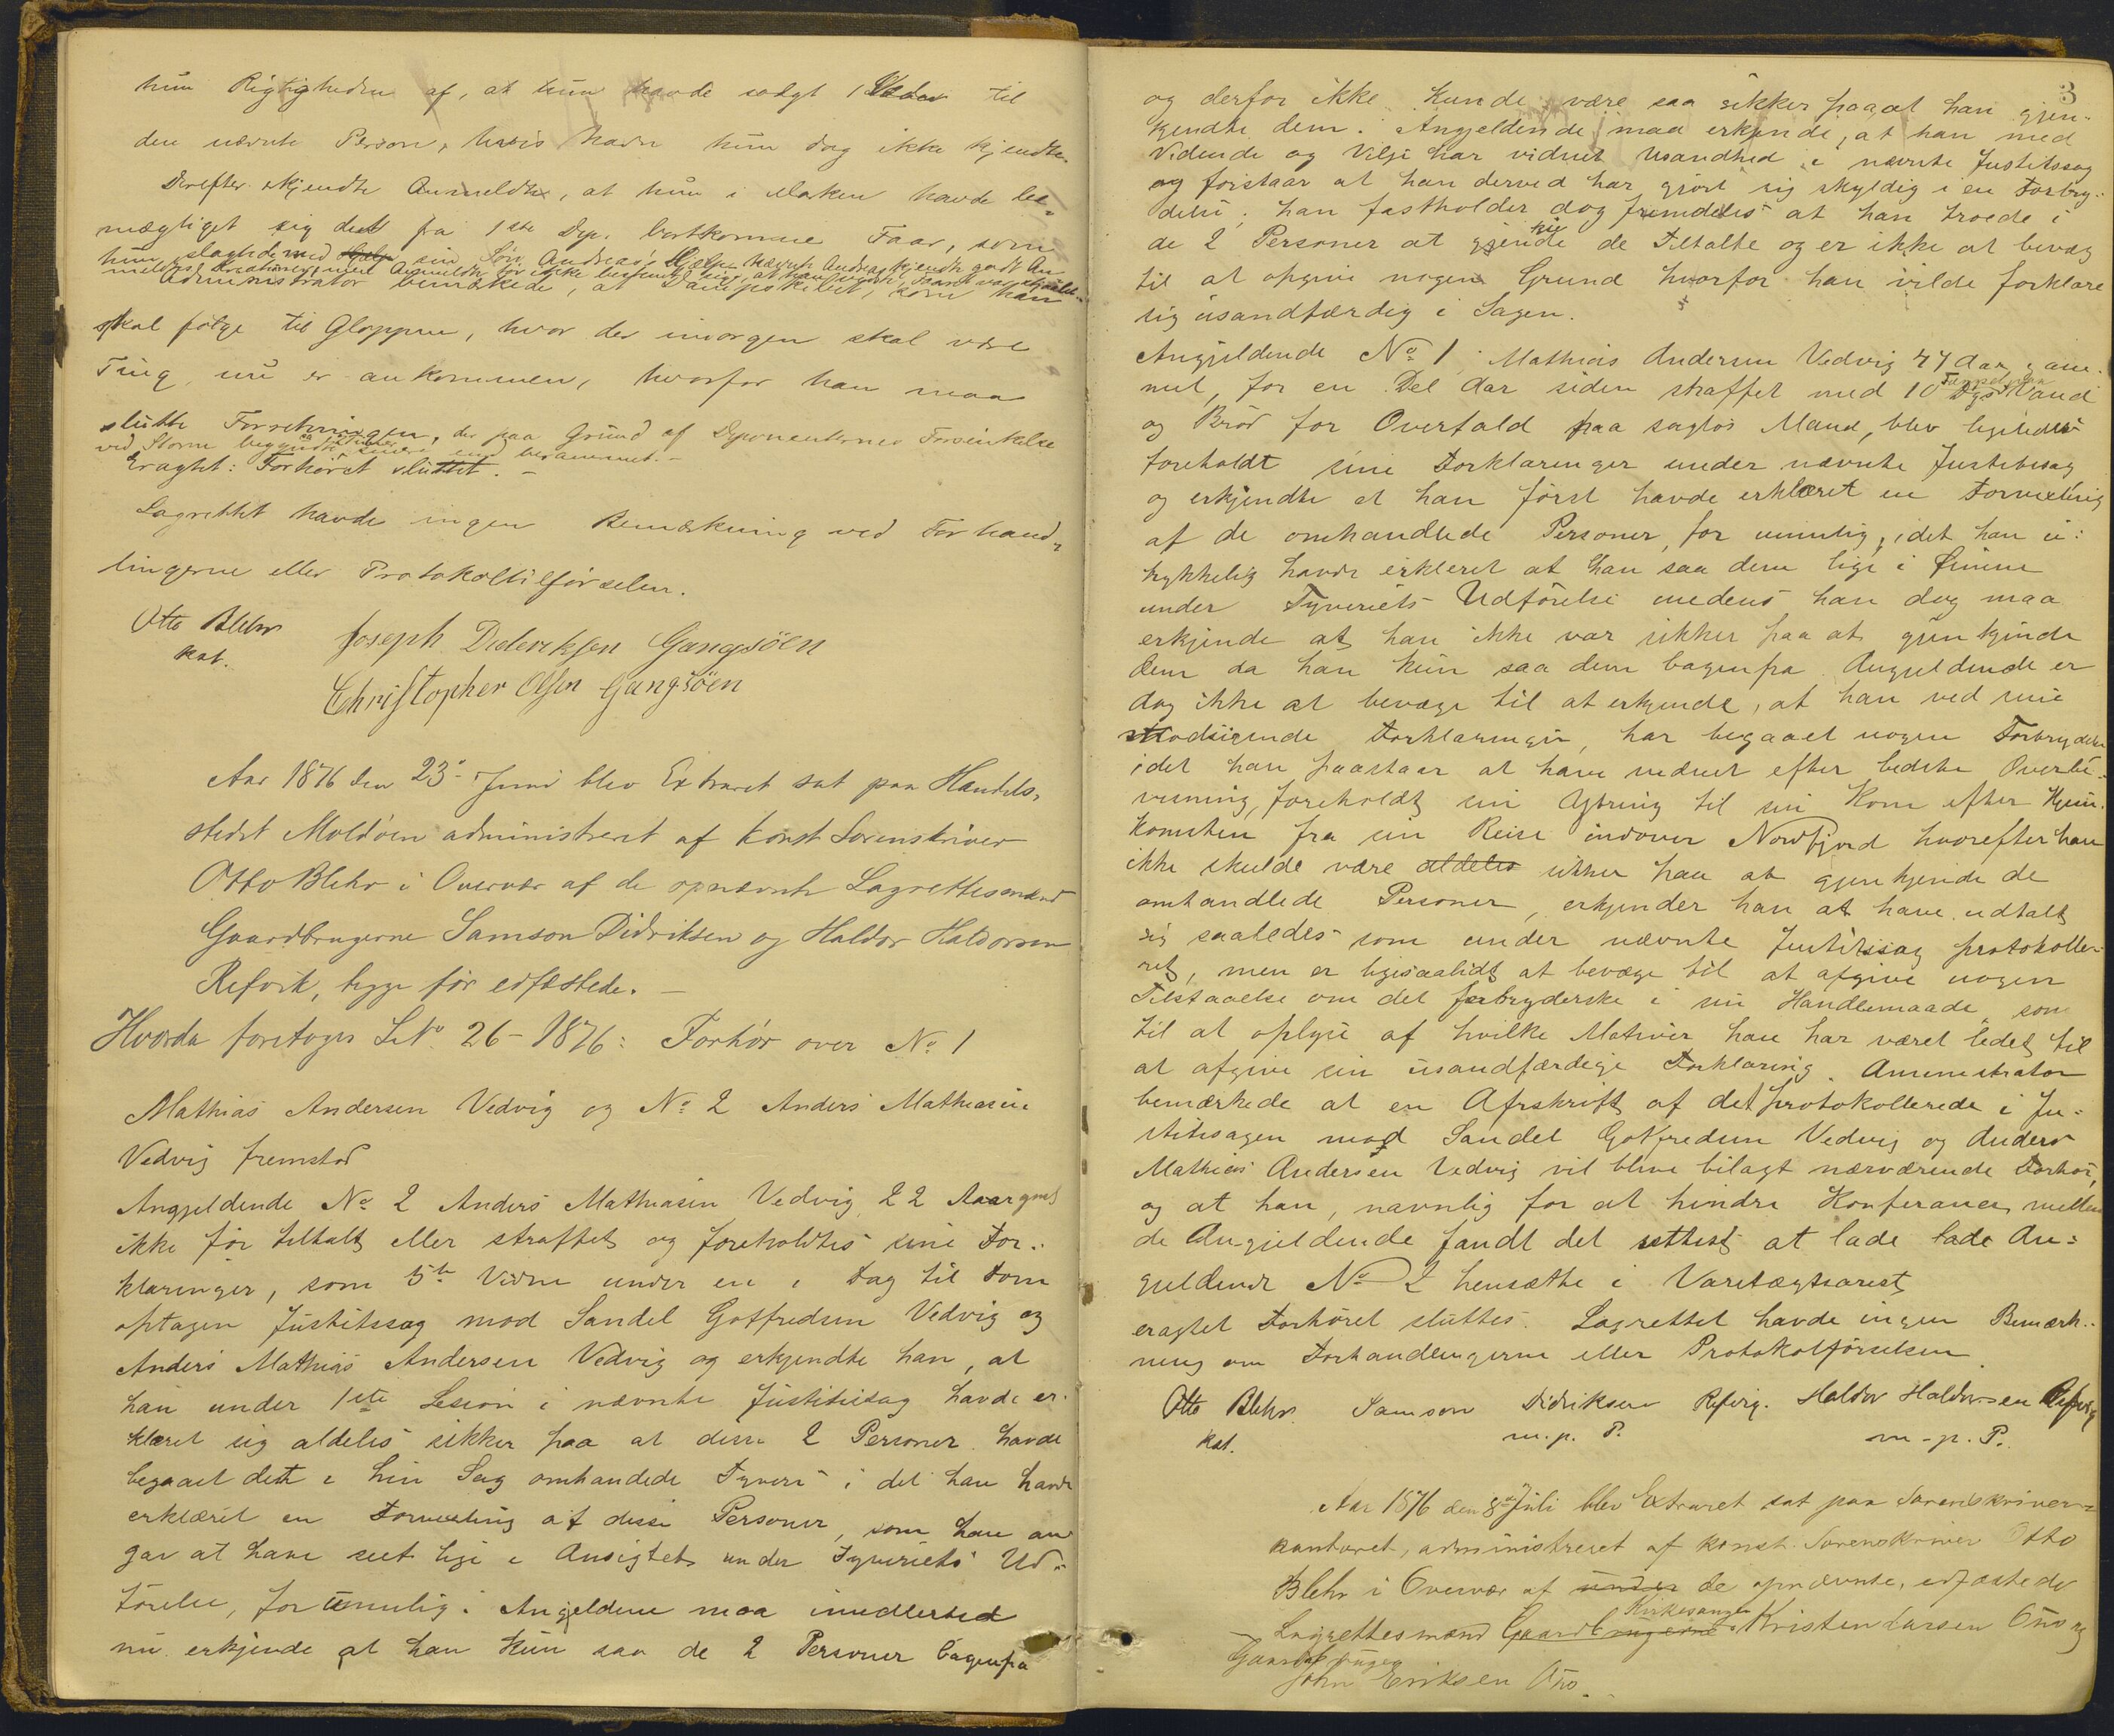 hun Rigtigheden af, at hun havde solgt 1 Væder til
den nævnte Person, hvis Navn hun dog ikke kjendte.
Derefter erkjendte Anmeldte, at hun i Marken havde be-
mægtiget sig det fra 1ste Dep. bortkomne Faar, som
hun slagtede med sin Søn Andreas' Hjælp. Nævnte Andreas kjendte godt An-
melderens Kreaturer, men Anmeldte tør ikke bestemt sige, at han vidste, Faaret var stjaalet.
Administrator bemærkede, at Dampskibet, som han
skal følge til Gloppen, hvor der imorgen skal være
Ting, nu er ankommen, hvorfor han maa
slutte Forretningen, der paa Grund af Deponenternes Forsinkelse
ved Storm begyndte Timer senere end berammet. -
Eragtet: Forhøret sluttet. -
Lagrettet havde ingen Bemærkning ved Forhand-
lingerne eller Protokoltilførselen.
Otto Blehr Joseph Dideriksen Gangsöen
kst. Christopher Olsen Gangsöen
Aar 1876 den 23de Juni blev Extraret sat paa Handels-
stedet Moldöen administreret af konst Sorenskriver
Otto Blehr i Overvær af de opnævnte Lagrettesmænd
Gaardbrugerne Samson Didriksen og Haldor Haldorsen
Refvik, begge før edfæstede. -
Hvorda foretoges L No 26 - 1876: Forhör over No 1
Mathias Andersen Vedvig og No 2 Anders Mathiasen
Vedvig fremstod
Angjeldende No 2 Anders Mathiasen Vedvig, 22 Aar gml
ikke før tiltalt eller straffet og foreholdtes sine For-
klaringer, som 5te Vidne under en i Dag til Dom
optagen Justitssag mod Sandel Gotfredsen Vedvig og
Anders Mathias Andersen Vedvig og erkjendte han, at
han under 1ste Sesion i nævnte Justitssag havde er-
klæret sig aldeles sikker paa at disse 2 Personer havde
begaaet dett i hin Sag omhandlede Tyveri i det han havde
erklæret en Forvexling af disse Personer, som han an
gav at have seet lige i Ansigtet under Tyveriets Ud-
förelse, for umulig. Angjeldene maa imidlertid
nu erkjende at han kun saa de 2 Personer bagenfra
3
og derfor ikke kunde være saa sikker paa at han gjen-
kjendte dem. Angjeldende maa erkjende, at han med
Vidende og Vilje har vidnet Usandhed i nævnte Justitssag
og forstaar at han derved har gjort sig skyldig i en Forbry-
delse; han fastholder dog fremdeles at han troede i
de 2 Personer at gjenkjende de Tiltalte og er ikke at bevæg
til at opgive nogen Grund hvorfor han vilde forklare
sig usandfærdig i Sagen.
Angjeldende No 1 Mathias Andersen Vedvig 47 Aar gam-
mel, for en Del Aar siden straffet med 10 Dgs Vand
og Bröd for Overfald paa sagtos Mand, blev ligeledes
foreholdt sine Forklaringer under nævnte Justitssag
og erkjendte at han først havde erklæret en Forvexling
af de omhandlede Personer, for umulig, idet han u-
trykkelig havde erkleret at han saa dem lige i Öinene
under Tyveriets Udförelse medens han dog maa
erkjende at han ikke var sikker paa at gjenkjende
dem da han kun saa dem bagenfra. Angjeldende er
dog ikke at bevæge til at erkjende, at han ved sine
modsigende Forklaringer, har begaaet nogen Forbrydelse
idet han paastaar at have vidnet efter bedste Overbe-
visning, foreholdt sin Ytring til sin Kone efter Hjem-
komsten fra sin Reise indover Nordfjord hvorefter han
ikke skulde være aldeles sikker paa at gjenkjende de
omhandlede Personer, erkjender han at have udtalt
sig saaledes som under nævnte Justitssag protokolle-
ret, men er ligesaalidt at bevæge til at afgive nogen
Tilstaaelse om det forbryderske i sin Handlemaade som
til at oplyse af hvilke Motiver han har været ledet til
at afgive sin usandfærdige Forklaring. Aministrator
bemærkede at en Afrskrift af det protokollerede i Ju-
stitssagen mod Sandel Gotfredsen Vedvig og Anders
Mathias Andersen Vedvig vil blive bilagt nærværende Forhör,
og at han, navnlig for at hindre Konferancer mellem
de Angjeldende fandt det rettest at lade lade An-
gjeldende No 2 hensætte i Varetægtsarest
eragtet Forhöret sluttes. Lagrettet havde ingen Bemærk-
ning om Forhandlingerne eller Protokolförselsen.
Otto Blehr. Samson Didriksen Refvig. Haldor Haldorsen Refvig
kst. m. p. P. m. p. P.
Aar 1876 den 8de Juli blev Extraret sat paa Sorenskriver-
kontoret, administreret af konst. Sorenskriver Otto
Blehr i Overvær af under de opnævnte, edfæstede
Kirkesanger
Lagrettesmænd Gaardbrugerne Kristen Larsen Öno og
Gaardbruger
John Eriksen Öno.